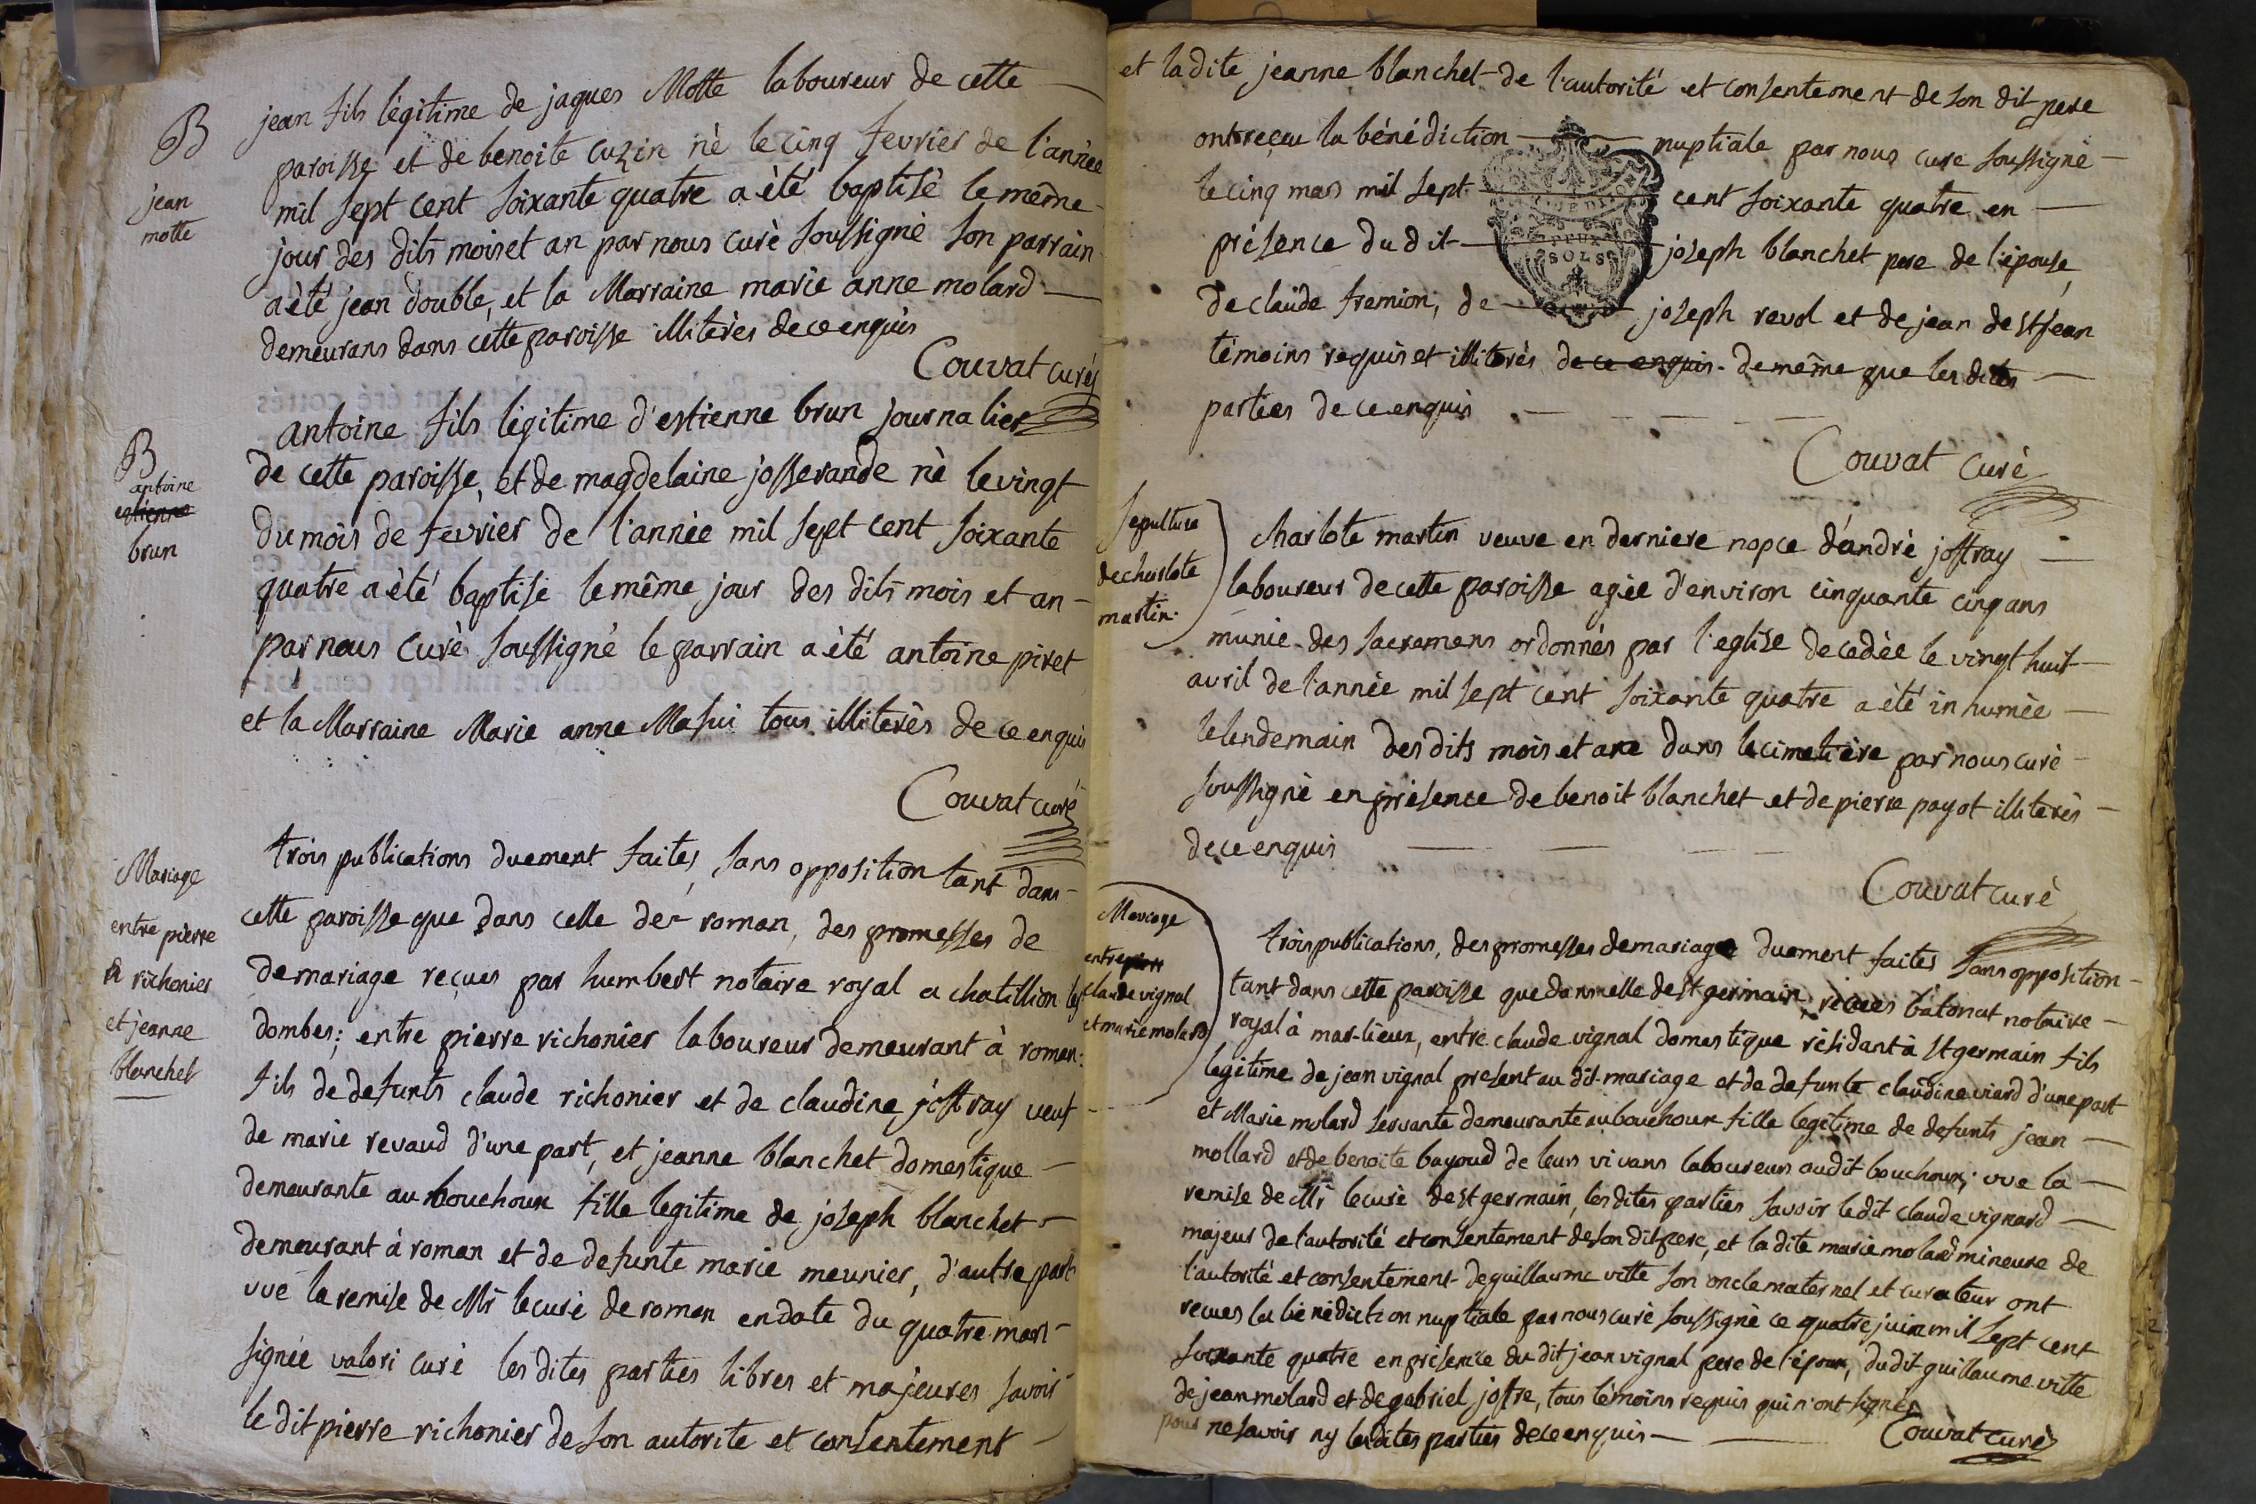 B
jean
motte
jean fils légitime de jaques Motte laboureur de cette
paroisse et de benoite cuzin nè le cinq fevrier de l'année
mil sept cent soixante quatre a été baptisé le même
jour des dits mois et an par nous curè soussigné son parrain
a été jean double, et la Marraine marie anne molard
demeurans dans cette paroisse illiterès de ce enquis
Couvat curé
B
antoine
estienne
brun
antoine fils légitime d'estienne brun journalier
de cette paroisse, et de magdelaine josserande nè le vingt
du mois de fevrier de l'année mil sept cent soixante
quatre a été baptisé le même jour des dits mois et an
par nous curè soussigné le parrain a été antoine piret
et la Marraine Marie anne Masui tous illiterès de ce enquis
Couvat curé
Mariage
entre pierre
richonier
et jeanne
blanchet
trois publications duement faites, sans opposition tant dans
cette paroisse que dans celle de roman, des promesses de
de mariage reçues par humbert notaire royal a chatillion les
dombes; entre pierre richonier laboureur demeurant à roman:
fils de defunts claude richonier et de claudine joffray veuf
de marie revaud d'une part, et jeanne blanchet domestique
demeurante au bouchoux fille legitime de joseph blanchet
demeurant à roman et de defunte marie meunier, d'autre part
vue la remise de Mr le curé de roman en date du quatre mars
signée valori curé les dites parties libres et majeures savoir
le dit pierre richonier de son autorite et consentement
et la dite jeanne blanchet de l'autorité et consentement de son dit pere
ont reçeu la bénédiction nuptiale par nous curé soussigné
le cinq mars mil sept cent soixante quatre en
présence du dit joseph blanchet pere de l'épouse,
SOLS
de claude fremion, de joseph revol et de jean de st jean
témoins requis et illiterés de ce enquis de même que les dites
parties de ce enquis
Couvat curè
sepulture
de charlote
martin.
charlote martin veuve en derniere nopce d'andré joffray
laboureur de cette paroisse agée d'environ cinquante cinq ans
munie des sacremens ordonnés par l'eglise decedée le vingt huit
avril de l'année mil sept cent soixante quatre a été inhumée
le lendemain des dits mois et an dans le cimetière par nous curè
soussigné en présence de benoit blanchet et de pierre payot illiterès
de ce enquis
Couvat curè
Mariage
entre pierre
claude vignal
et marie molard
trois publications, des promesses de mariage duement faites sans opposition
tant dans cette paroisse que dans celle de st germain, recues bâtonat notaire
royal à mar-lieux, entre claude vignal domestique résidant à st germain fils
legitime de jean vignal present au dit mariage et de defunte claudine viard d'une part
et Marie molard servante demeurante au bouchoux fille legitime de defunts jean
mollard et de benoite bayoud de leurs vivans laboureurs audit bouchoux; vue la
remise de Mr le curé de st germain, les dites parties savoir le dit claude vignard
majeur de l'autorité et consentement de son dit pere, et la dite marie molard mineure de
l'autorité et consentement de guillaume vitte son oncle maternel et curateur ont
recues la bénédiction nuptiale par nous curé soussigné ce quatre juin mil sept cent
soixante quatre en présence du dit jean vignal pere de l'époux, du dit guillaume vitte
de jean molard et de gabriel joffre, tous témoins requis qui n'ont signés
pour ne savoir ny les dites parties de ce enquis
Couvat curè